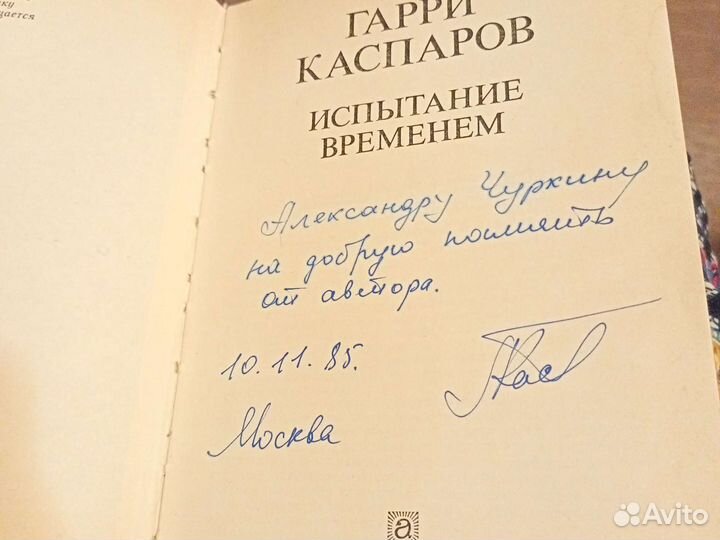 ку
щается
ГАРРИ
КАСПАРОВ
ИСПЫТАНИЕ
ВРЕМЕНЕМ
Александру Чуркину
на добрую память
от автора.
10.11.85.
Москва
а
Avito